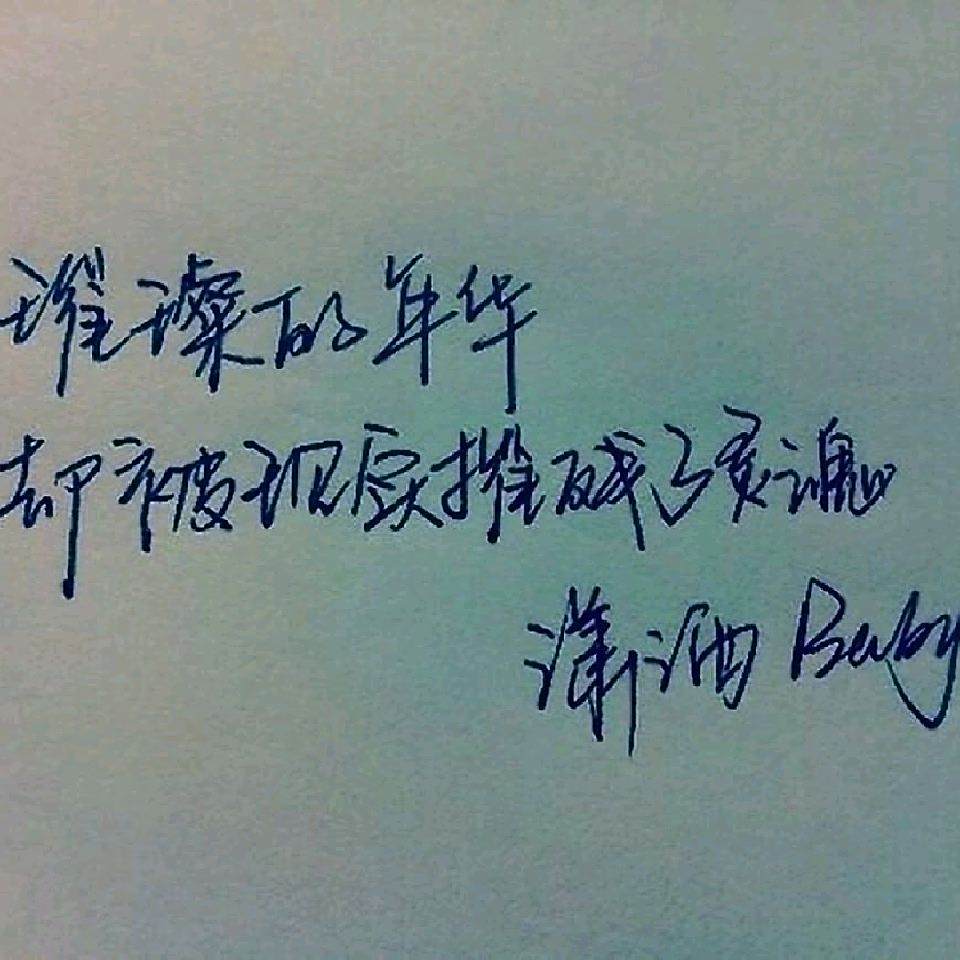 璀璨的年华
却被现实摧残了灵魂
潇洒 Baby